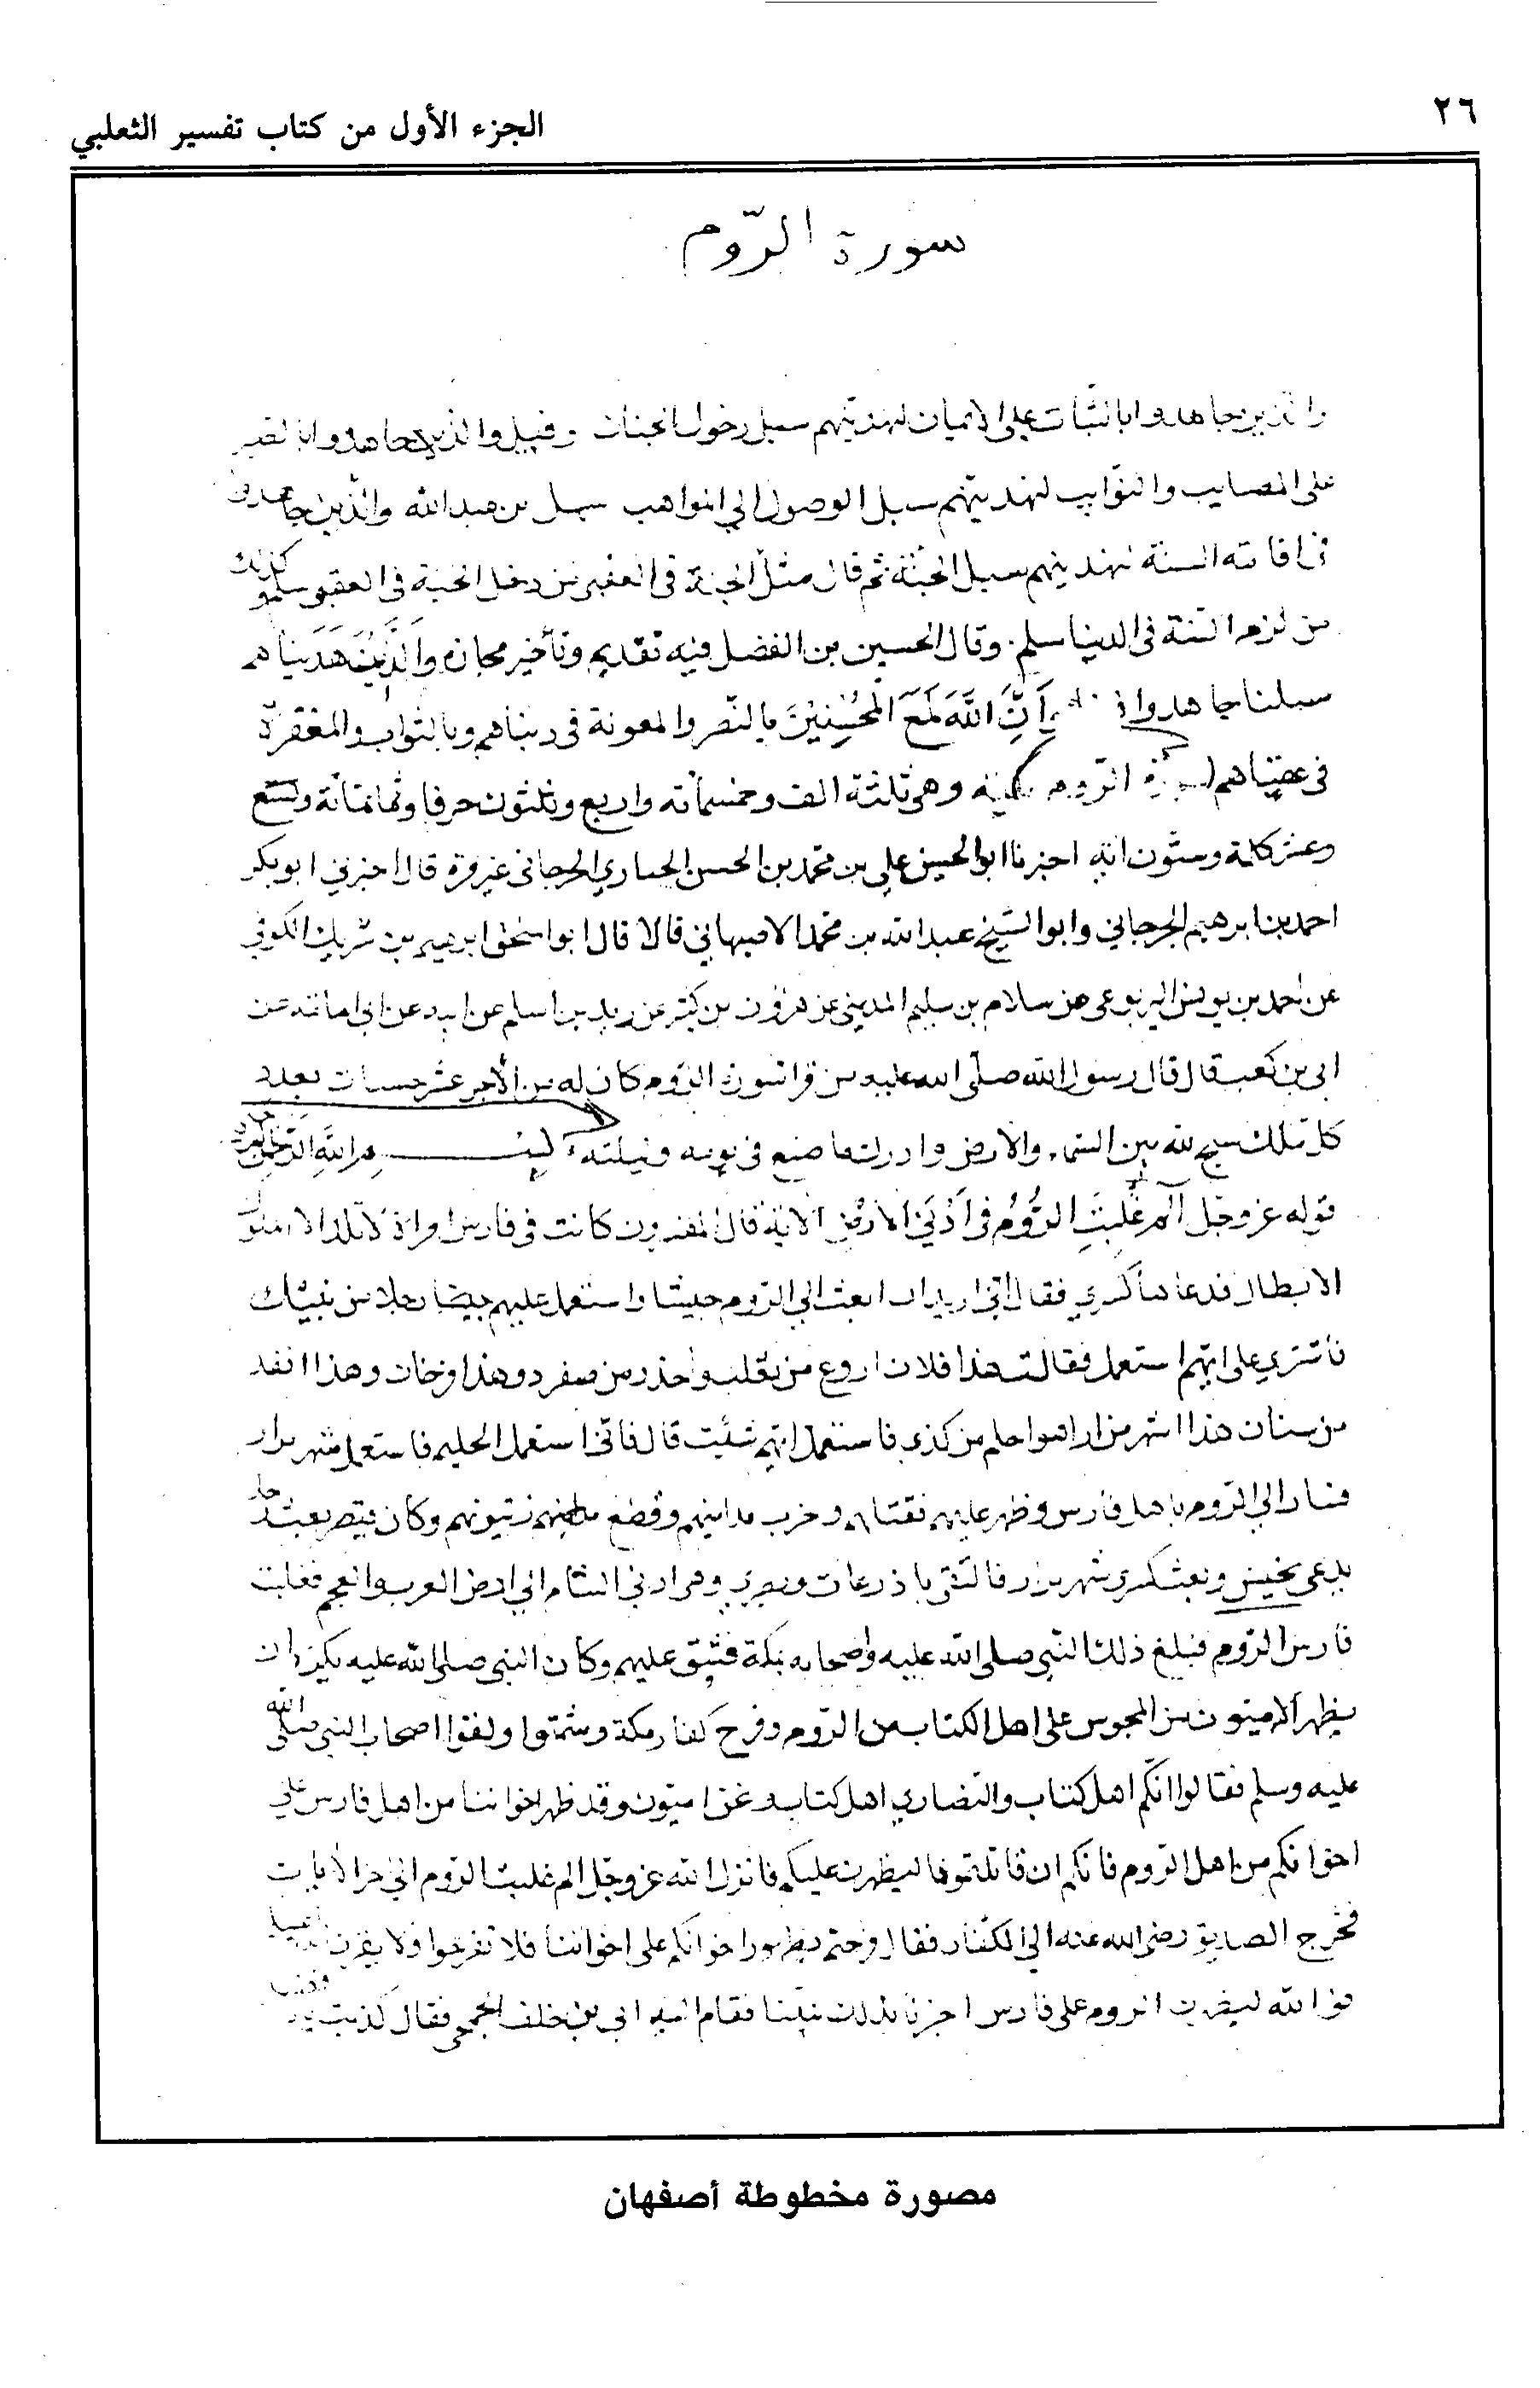 ٢٦
الجزء الأول من كتاب تفسير الثعلبي
سورة الرّوم
والذين جاهدوا بالثبات على الايمان لنهدينهم سبل دخول الجنان وقيل والذين جاهدوا بالصبر
على المصايب والنوايب لنهدينهم سبل الوصول الي المواهب سهل بن عبد الله والذين جاهدوا
في اقامة السنة لنهدينهم سبل الجنة ثم قال مثل الجنة في العقبى من دخل الجنة في العقبى سلم كذلك
من لزم السنة في الدينا سلم. وقال الحسين بن الفضل فيه تقديم وتأخير مجازه وَالَّذِينَ هَدَيناهم
سبلنا جاهدوا فينا وَاَنَّ اللَّهَ لَمَعَ المُحْسِنِيْنَ بالنصر والمعونة في دنياهم وبالثواب والمغفرة
في عقبياهم سورة الرّوم مكية وهي ثلثة الف وخمسمائه واربع وثلثون حرفا وثمانمائة وتسع
وعشر كلمة وستّون آية اخبرنا ابو الحسين علي بن محمد بن الحسن الجرجاني غير مرة قال اخبرني ابوبكر
احمد بن ابرهيم الجرجاني وابو الشيخ عبدالله بن محمد الاصبهاني قالا قال ابو اسحق ابرهيم بن شريك الكوفي
عن احمد بن يونس اليربوعي عن سلام بن سليم المديني عن هرون بن كثير عن زيد بن اسلم عن ابيه عن ابي امامة عن
ابي بن كعب قال قال رسول الله صلّى الله عليه من قرا سورة الرّوم كان له من الأجر عشر حسنات بعدد
كل ملك سبح لله بين السّماء والارض وادرك ما صنع في يومه وليلته بسم الله الرّحمن الرحيم
قوله عز وجل الم غُلِبَتِ الرُّوُمُ في أَدْنَى الأَرْضِ الآية قال المفسرون كانت في فارس امراة لا تلد الا الملوك
الابطال فدعاها كسري فقال اني اريد ان ابعث الي الرّوم جيشا واستعمل عليهم رجلا من بنيك
فأشيري على ايّهم استعمل فقالت هذا فلان اروغ من ثعلب واحذر من صقر وهذا فرخان وهذا انفذ
من سنان هذا شهربراز هو احلم من كذي فاستعمل ايّهم شئيت قال فاني استعمل الحليم فاستعمل شهربراز
فسار الي الرّوم باهل فارس وظهر عليهم فقتلهم وخرب مداينهم وقطع زيتونهم وكان قيصر بعث رجلا
يدعى يحنس وبعث كسرى شهربراز فالتقى باذرعات وبصري وهو ادني الشام الي ارض العرب والعجم فغلبت
فارس الرّوم فبلغ ذلك النّبي صلى الله عليه واصحابه بمكة فشق عليهم وكان النبي صلى الله عليه يكره ان
يظهر الاميون من المجوس على اهل الكتاب من الرّوم وفرح كفار مكة وشمتوا ولقوا اصحاب النبي صلى الله
عليه وسلم فقالوا انّكم اهل كتاب والنصاري اهل كتاب ونحن اميّون وقد ظهر اخواننا من اهل فارس علي
اخوانكم من اهل الرّوم فانكم ان قاتلتمونا لنظهرن عليكم فانزل الله عز وجل الم غلبت الرّوم الي اخر الأيات
فخرج الصديق رضى الله عنه الي الكفّار فقال فرحتم بظهور اخوانكم على اخواننا فلا تفرحوا ولا يقرن
فو الله ليظهرن الروم على فارس اخبرنا بذلك نبيّنا فقام اليه ابي بن خلف الجمحي فقال كذبت
مصورة مخطوطة أصفهان